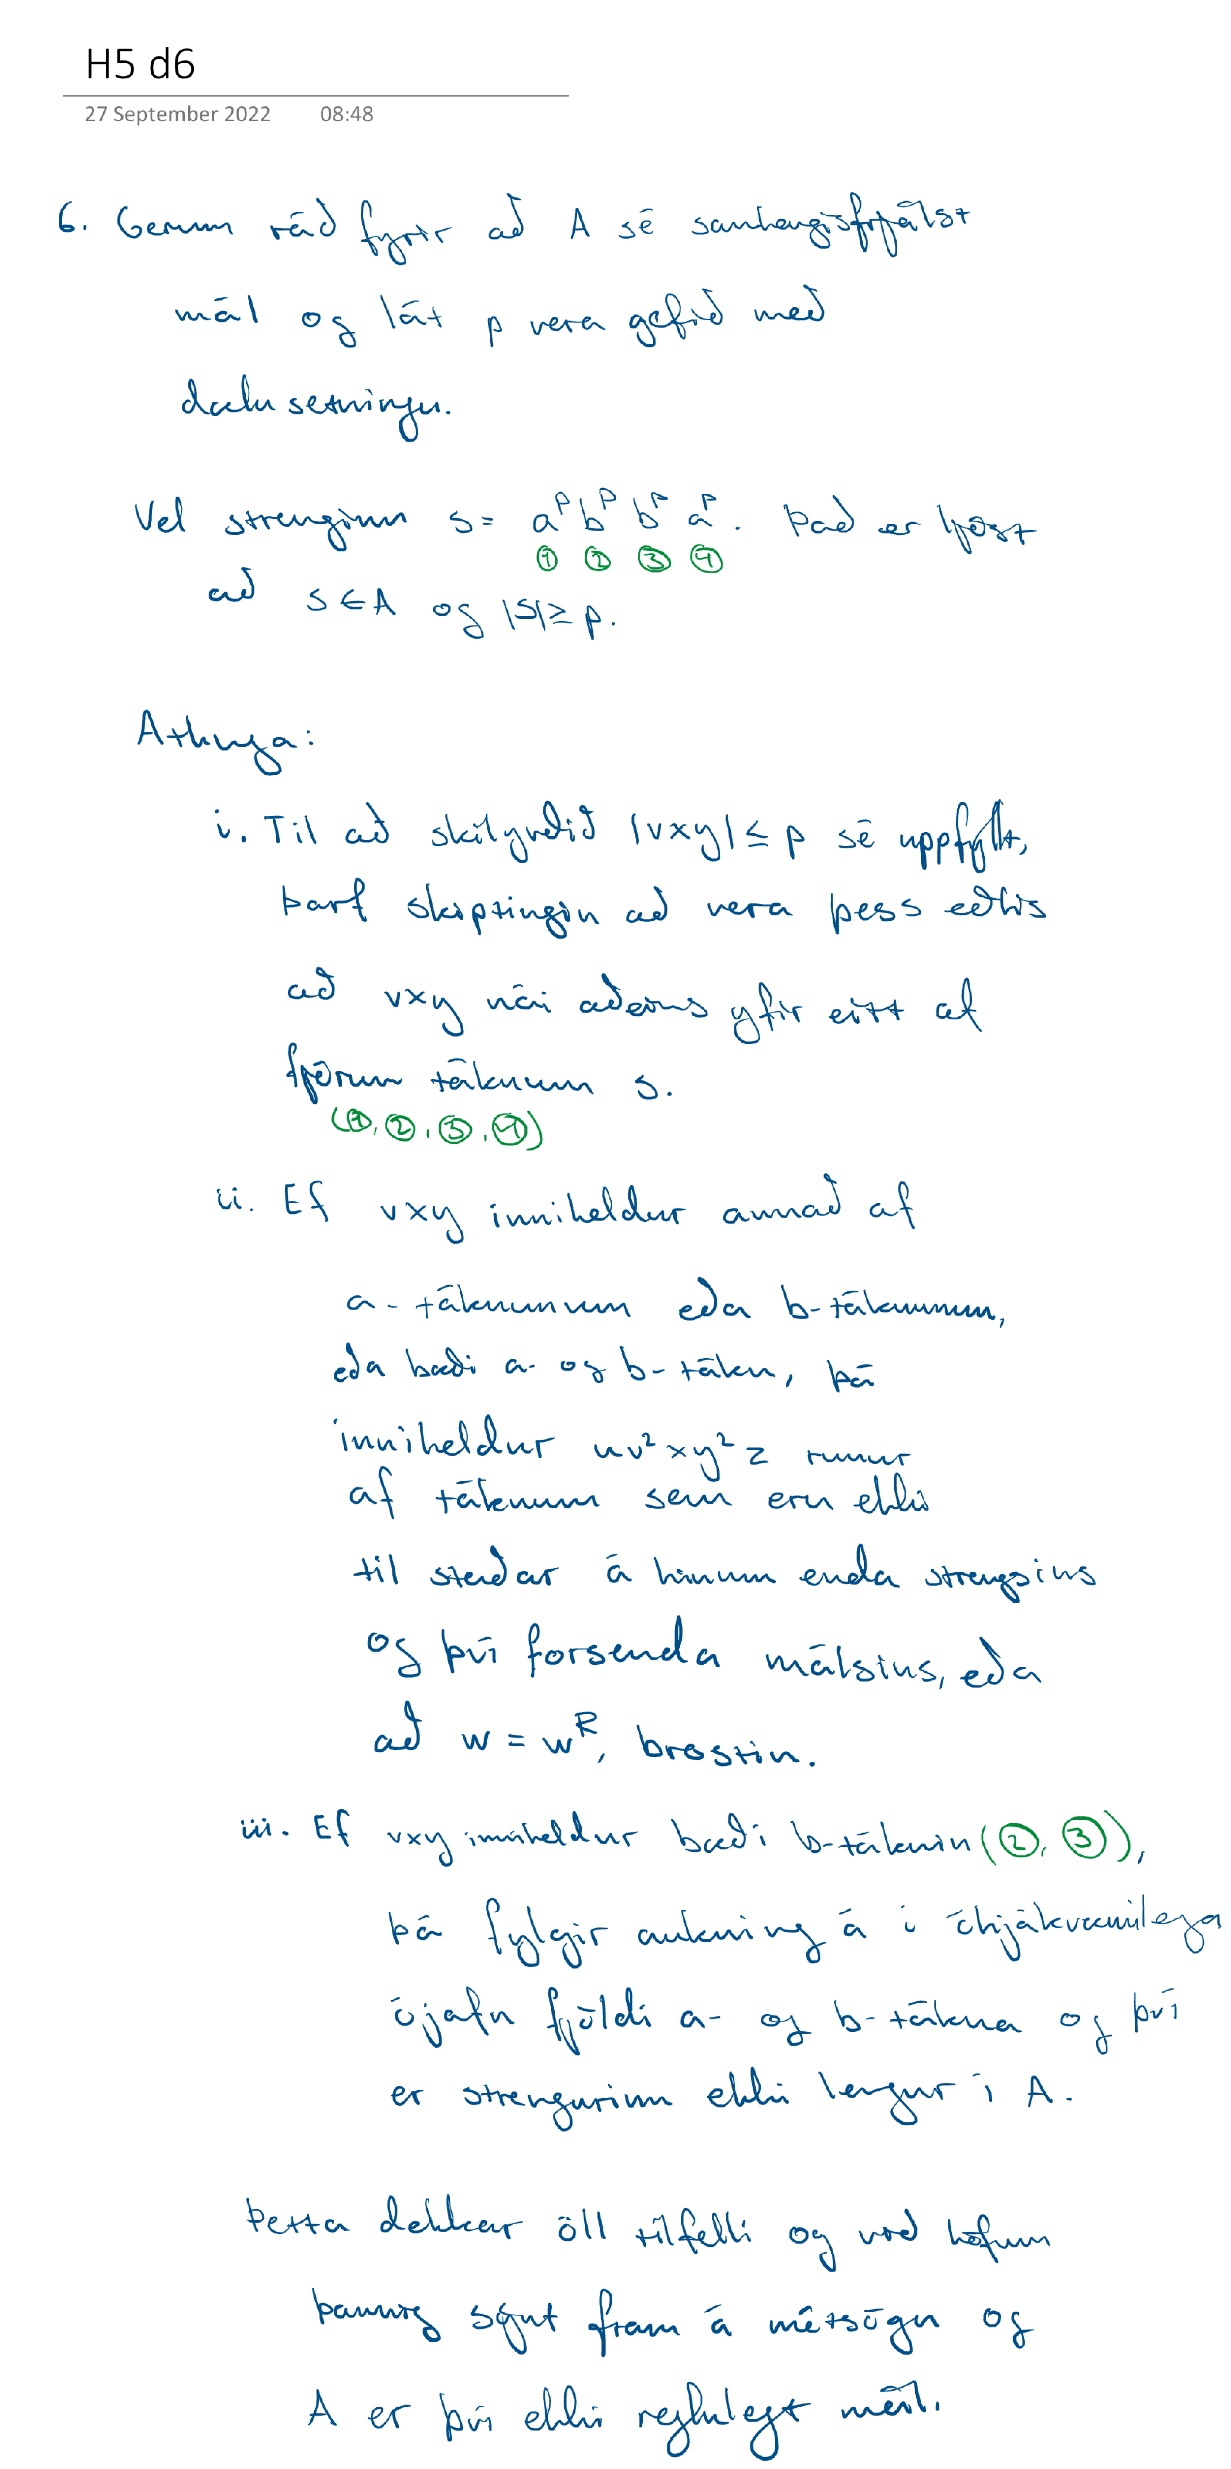 H5 d6
27 September 2022 08:48
6. Gerum ráð fyrir að A sé samhengisfrjálst
mál og lát p vera gefið með
dælusetningu.
Vel strenginn s = aᵖbᵖ bᵖ aᵖ. Það er ljóst
① ② ③ ④
að s ∈ A og |S| ≥ p.
Athuga:
i. Til að skilyrðið |vxy| ≤ p sé uppfyllt,
þarf skiptingin að vera þess eðlis
að vxy nái aðeins yfir eitt af
fjórum táknum s.
(①, ②, ③, ④)
ii. Ef vxy inniheldur annað af
a-táknunum eða b-táknunum,
eða bæði a- og b-tákn, þá
inniheldur uv²xy²z runur
af táknum sem eru ekki
til staðar á hinum enda strengsins
og því forsenda málsins, eða
að w = wᴿ, brostin.
iii. Ef vxy inniheldur bæði b-táknin (②, ③),
þá fylgir aukning á i óhjákvæmilega
ójafn fjöldi a- og b-tákna og því
er strengurinn ekki lengur í A.
Þetta dekkar öll tilfelli og við höfum
þannig sýnt fram á mótsögn og
A er því ekki reglulegt mál.